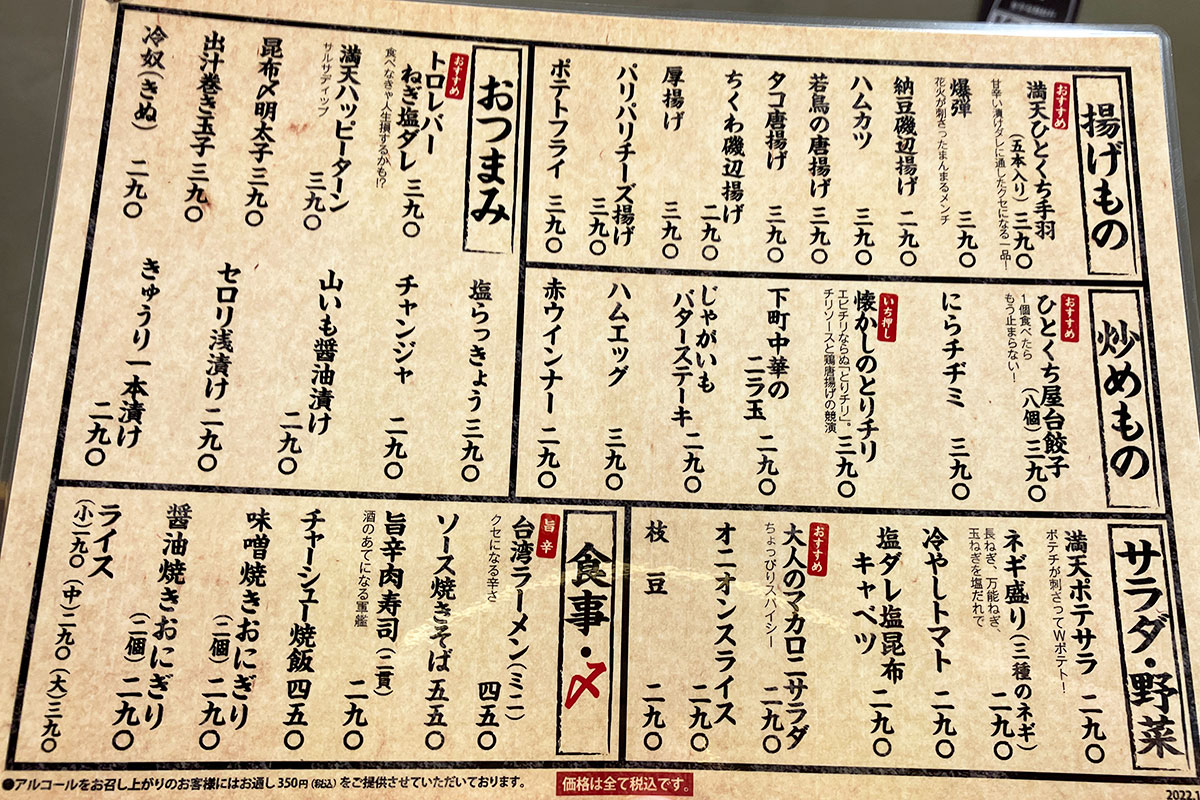 揚げもの
おすすめ
満天ひとくち手羽
(五本入り) 三九〇
甘辛い漬けダレに通したクセになる一品!
爆弾 三九〇
花火が刺さったまんまるメンチ
納豆磯辺揚げ 二九〇
ハムカツ 三九〇
若鳥の唐揚げ 三九〇
タコ唐揚げ 三九〇
ちくわ磯辺揚げ 二九〇
厚揚げ 三九〇
パリパリチーズ揚げ 三九〇
ポテトフライ 三九〇
おつまみ
おすすめ
トロレバー
ねぎ塩ダレ 三九〇
食べなきゃ人生損するかも!?
満天ハッピーターン 三九〇
サルサディップ
昆布〆明太子 三九〇
出汁巻き玉子 三九〇
冷奴(きぬ) 二九〇
塩らっきょう 三九〇
チャンジャ 二九〇
山いも醤油漬け 二九〇
セロリ浅漬け 二九〇
きゅうり一本漬け 二九〇
炒めもの
おすすめ
ひとくち屋台餃子
(八個) 三九〇
1個食べたら
もう止まらない!
にらチヂミ 三九〇
いち押し
懐かしのとりチリ 三九〇
エビチリならぬ「とりチリ」。
チリソースと鶏唐揚げの競演
下町中華の
ニラ玉 二九〇
じゃがいも
バターステーキ 二九〇
ハムエッグ 三九〇
赤ウインナー 二九〇
サラダ・野菜
満天ポテサラ 二九〇
ポテチが刺さってWポテト!
ネギ盛り(三種のネギ) 二九〇
長ねぎ、万能ねぎ、
玉ねぎを塩だれで
冷やしトマト 二九〇
塩ダレ塩昆布
キャベツ 二九〇
おすすめ
大人のマカロニサラダ 二九〇
ちょっぴりスパイシー
オニオンスライス 二九〇
枝豆 二九〇
食事・〆
旨辛
台湾ラーメン(ミニ) 四五〇
クセになる辛さ
ソース焼きそば 五五〇
旨辛肉寿司(二貫) 二九〇
酒のあてになる軍艦
チャーシュー焼飯 四五〇
味噌焼きおにぎり
(二個) 二九〇
醤油焼きおにぎり
(二個) 二九〇
ライス
(小)二九〇 (中)二九〇 (大)三九〇
●アルコールをお召し上がりのお客様にはお通し350円(税込)をご提供させていただいております。
価格は全て税込です。
2022.1